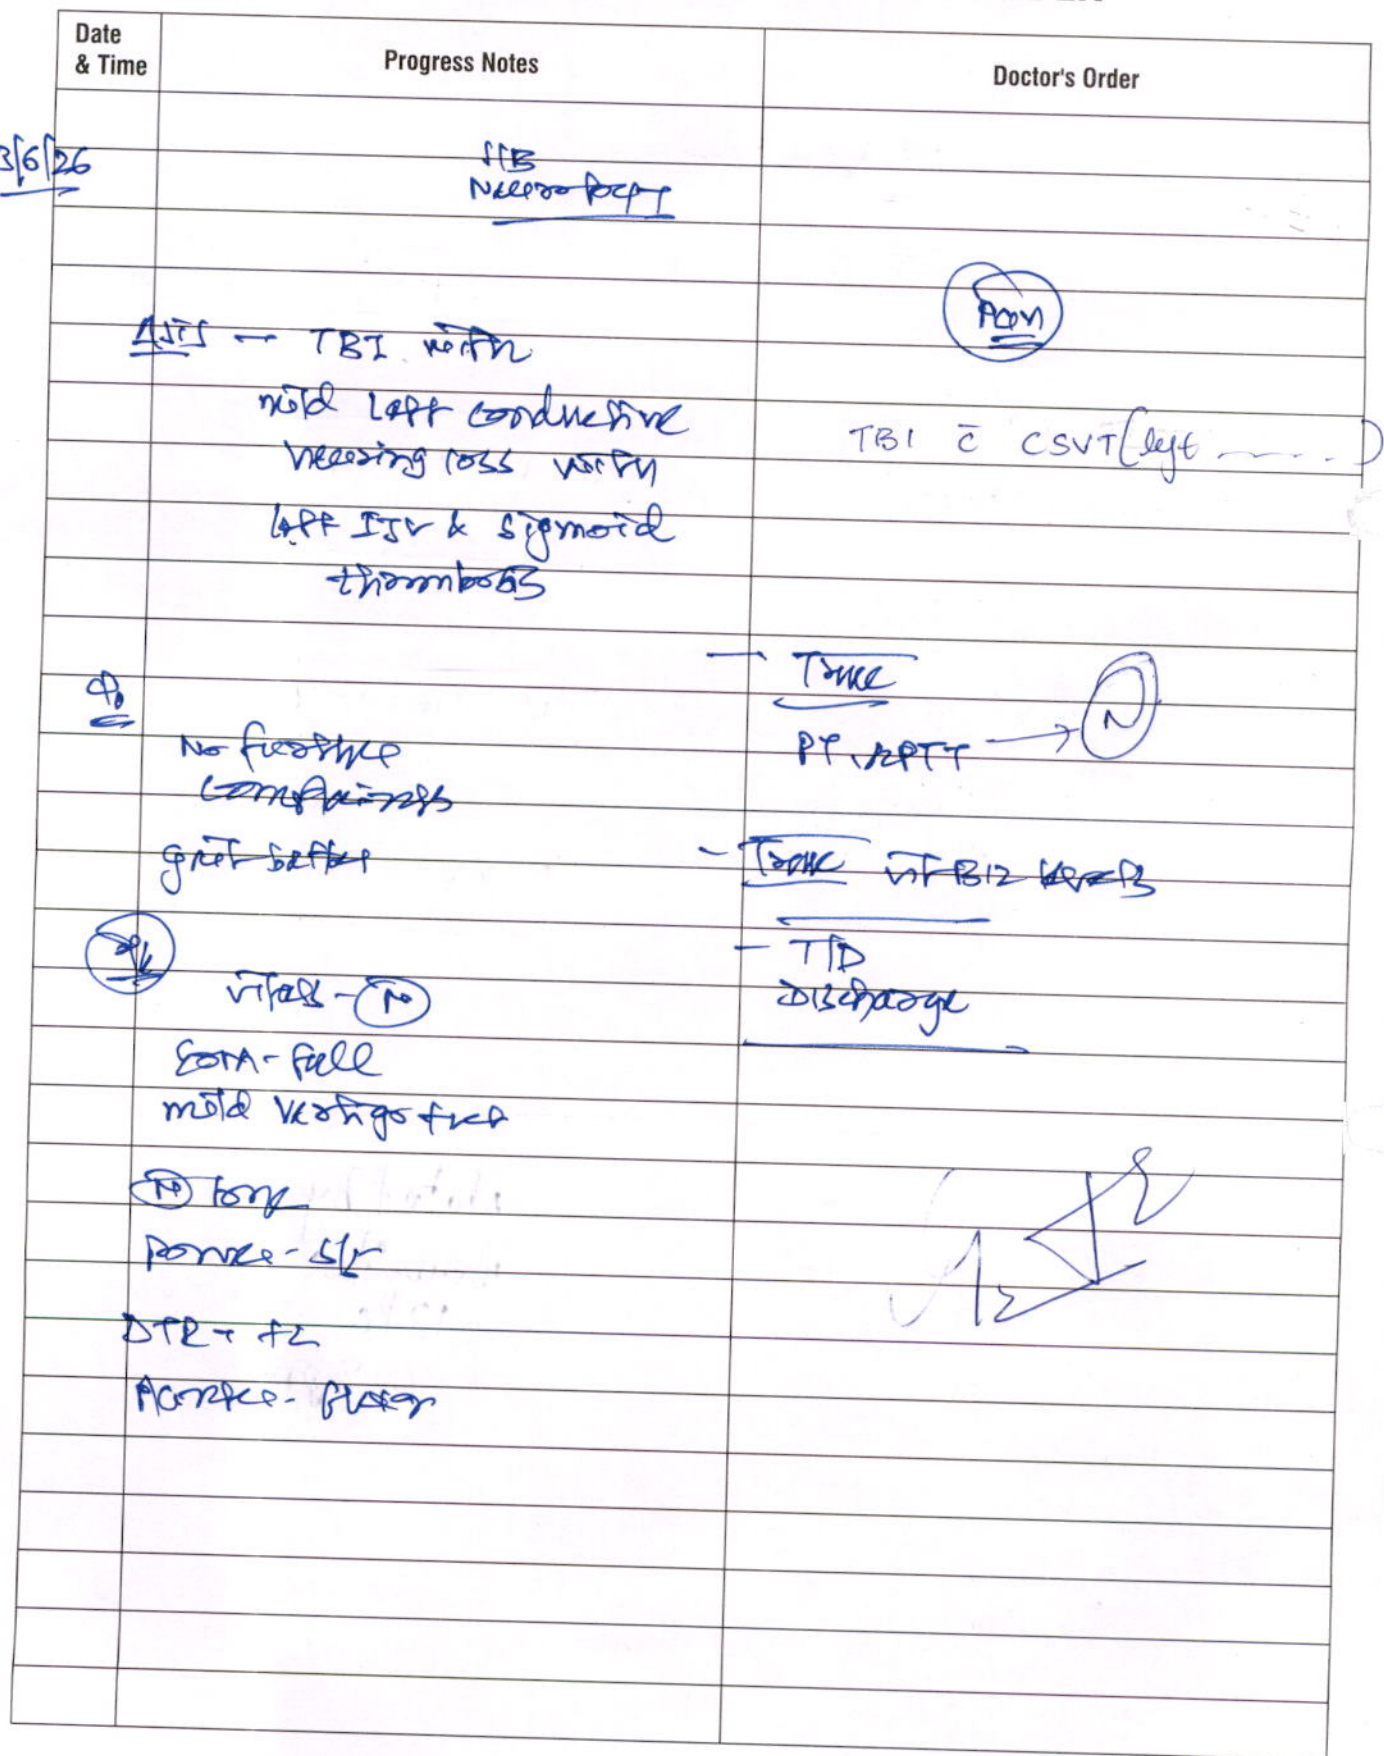 Date & Time
Progress Notes
Doctor's Order
3/6/26
S/B
Neurology
TBI with
mild left conductive
hearing loss with
left IJV & sigmoid
thrombosis
No further
complaints
Vitals - N
EOM - full
mild vertigo
N tone
Power - 5/5
DTR - +2
Plantar - flexor
Plan
TBI c̄ CSVT (left ........)
- Trace
PT, APTT → N
- Trace vit B12 levels
- T/D
Discharge